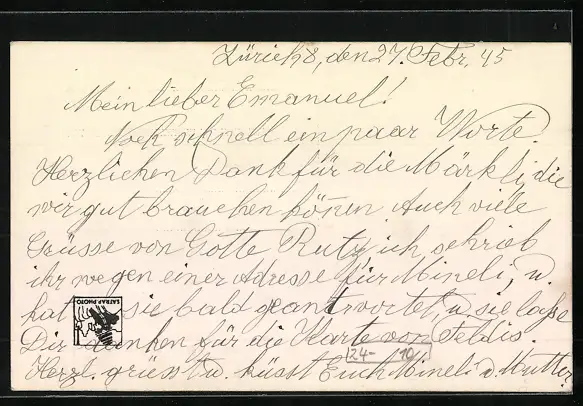 Zürich 8, den 27. Febr. 45
Mein lieber Emanuel!
Noch schnell ein paar Worte.
Herzlichen Dank für die Märkli, die
wir gut brauchen können. Auch viele
Grüsse von Gotte Rutz, ich schrieb
ihr wegen einer Adresse für Mineli, u.
hat sie bald geantwortet, u. sie lasse
Dir danken für die Karte von Feldis.
Herzl. grüsst u. küsst Euch Mineli u. Mutter.
SATRAP PHOTO
24-
10